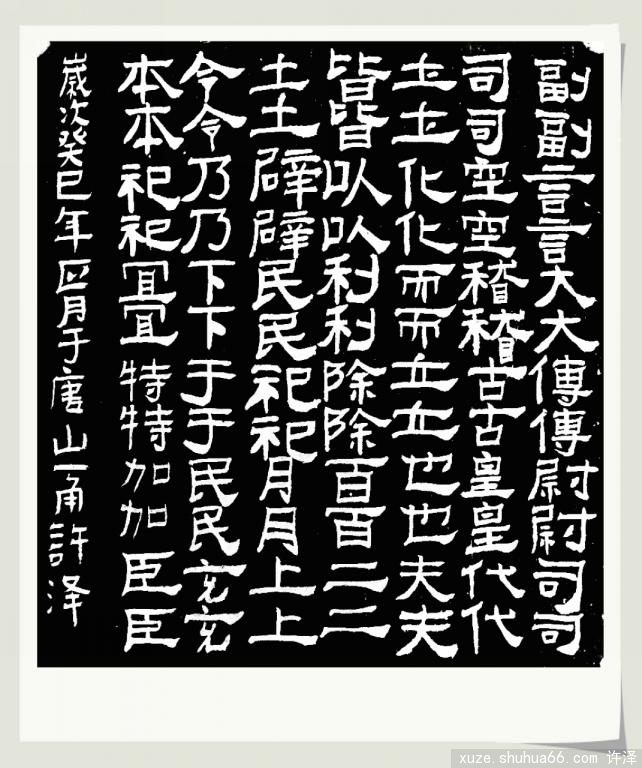 副副言言大大傅傅尉尉司司
司司空空稽稽古古皇皇代代
土土化化而而丘丘也也夫夫
皆皆以以利利除除百百二二
土土辟辟民民祀祀月月上上
令令乃乃下下于于民民充充
本本祀祀宜宜特特加加臣臣
嵗次癸巳年 月于唐山一甬許泽
xuze.shuhua66.com 许泽